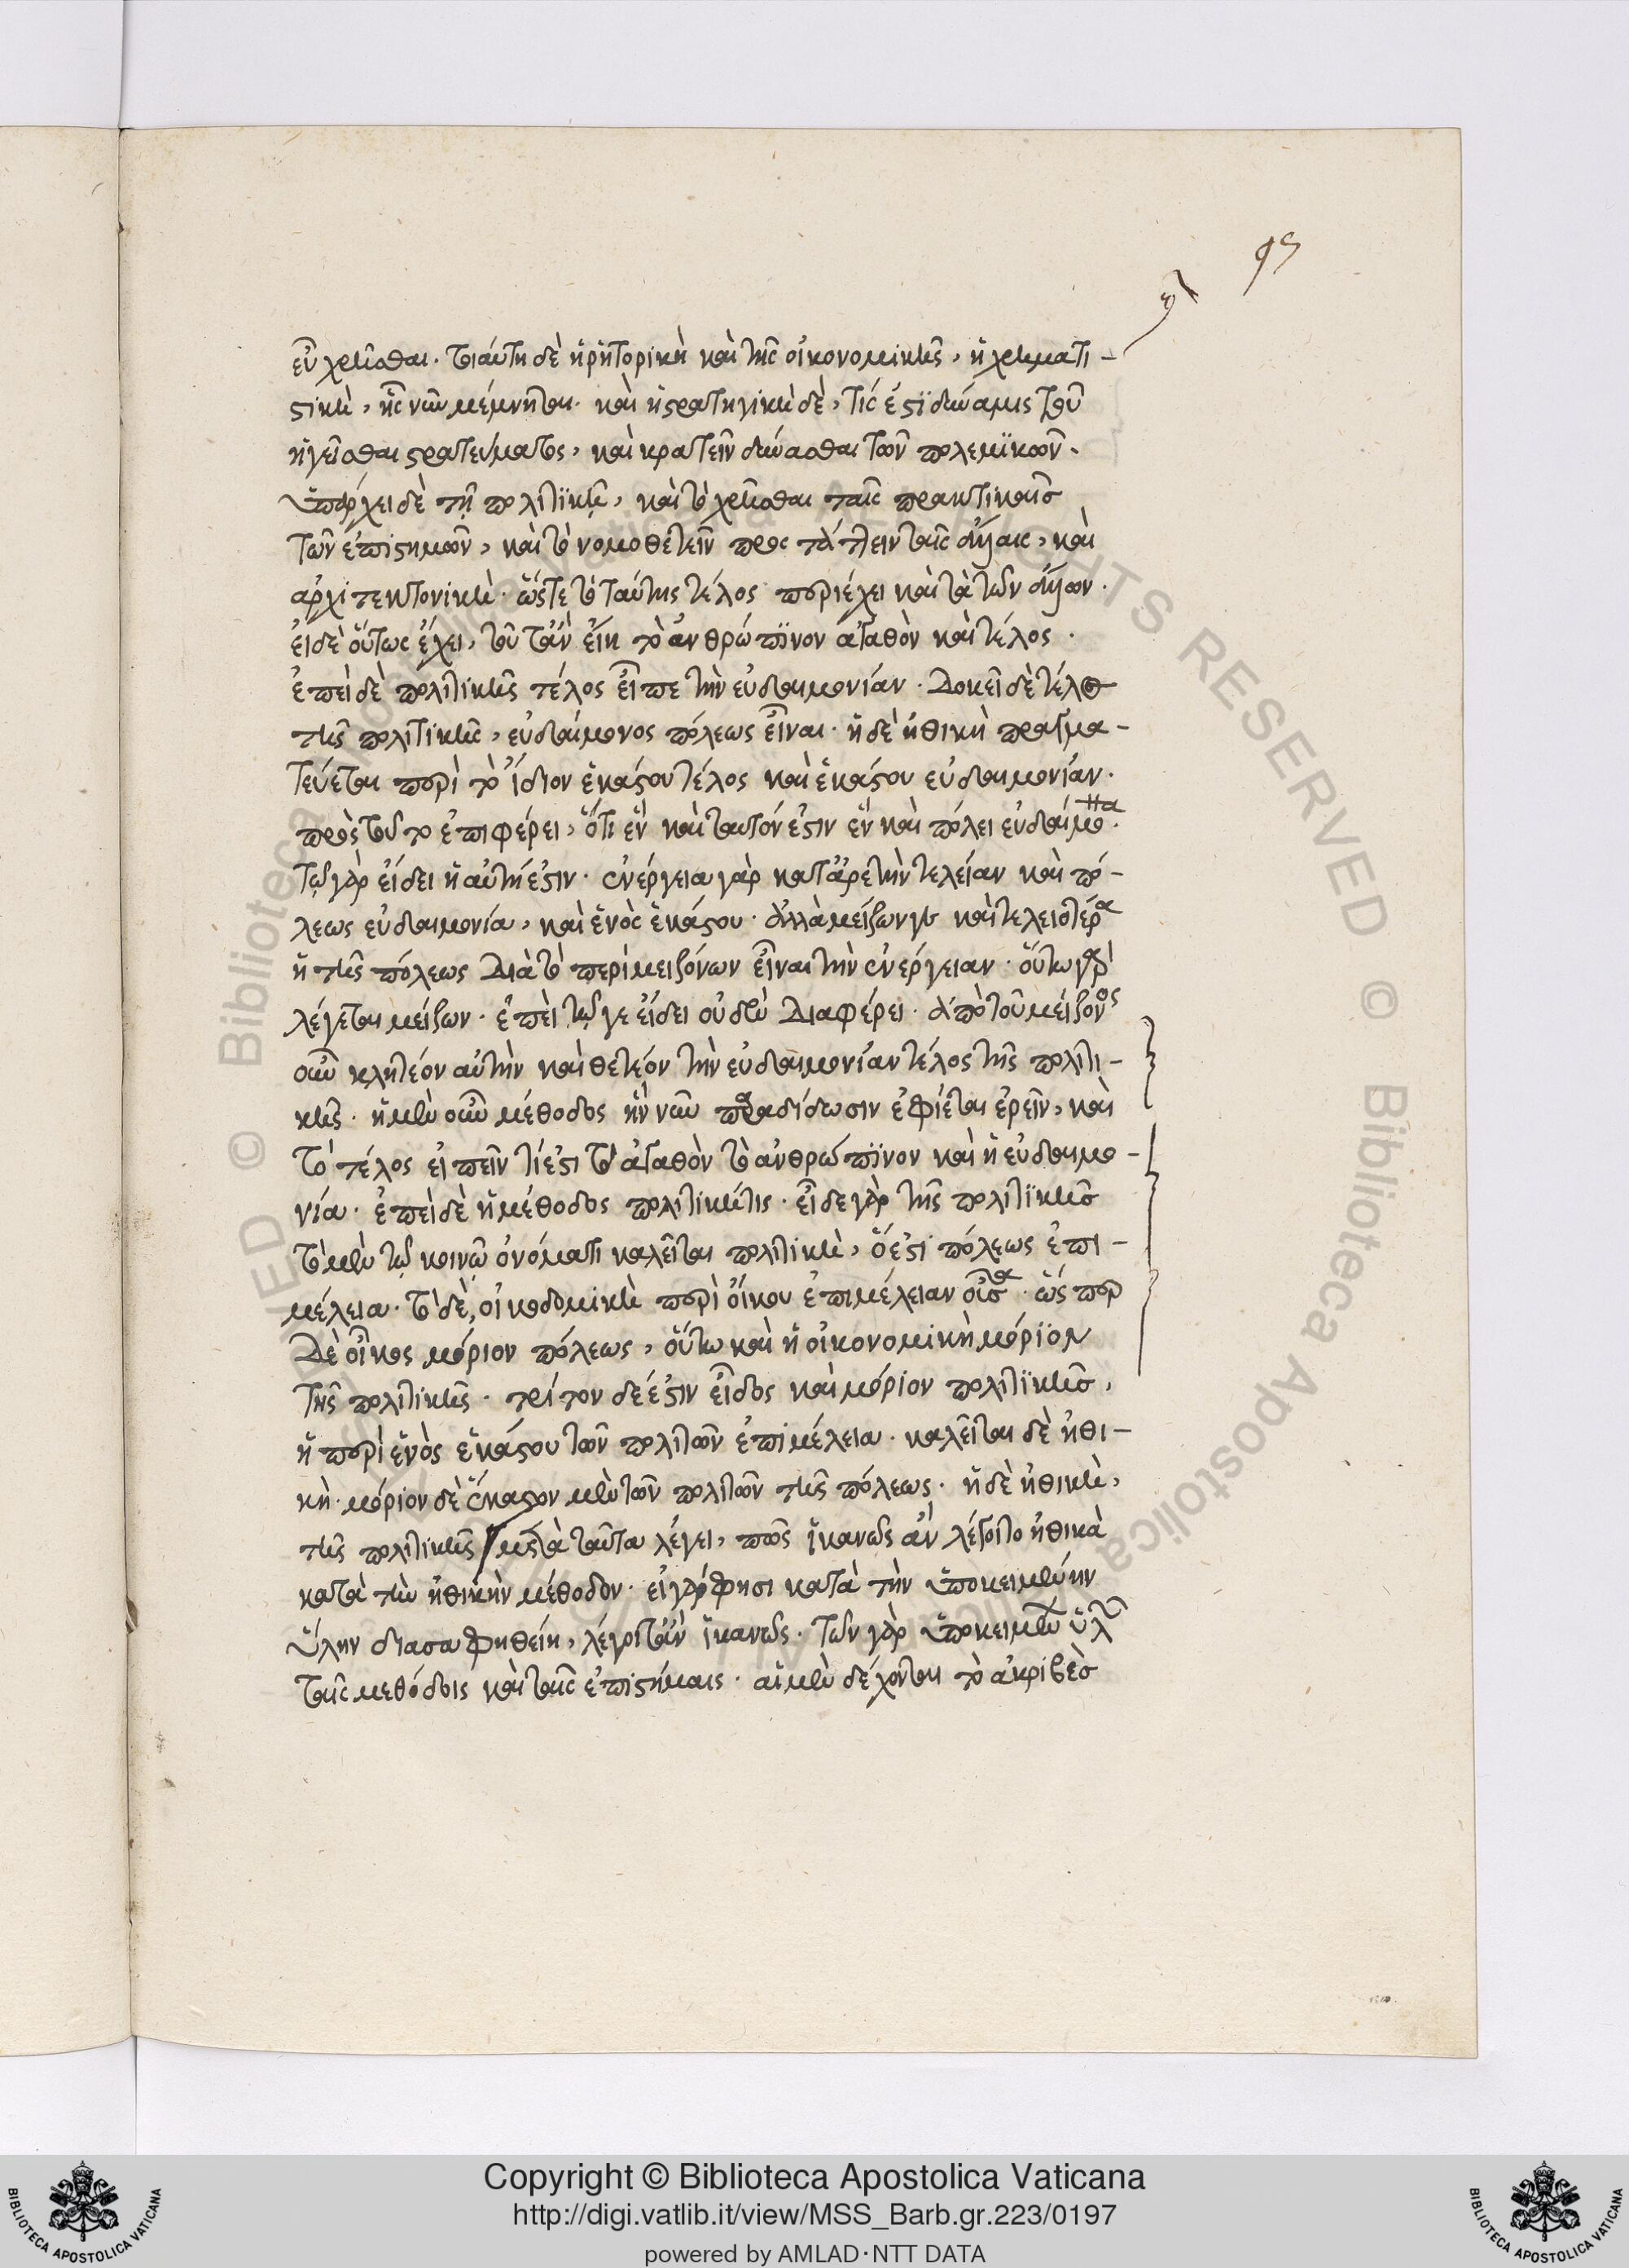 95
εὖ χρῆσθαι· τοιαύτη δὲ ἡ ῥητορικὴ καὶ τῆς οἰκονομικῆς, ἡ χρηματι-
στικὴ, ἧς νῦν μέμνηται· καὶ ἡ στρατηγικὴ δὲ, τίς ἐστὶ δύναμις τοῦ
ἡγεῖσθαι στρατεύματος, καὶ κρατεῖν δύνασθαι τῶν πολεμϊκῶν.
ὑπάρχει δὲ τῇ πολιτϊκῇ, καὶ τὸ χρῆσθαι ταῖς πρακτικαῖς
τῶν ἐπιστημῶν, καὶ τὸ νομοθετεῖν πρὸς ταῖς ἄλλαις, καὶ
ἀρχιτεκτονικὴ· ὥστε τὸ ταύτης τέλος περιέχει καὶ τὰ τῶν ἄλλων.
εἰ δὲ οὕτως ἔχει, τοῦτ' ἂν εἴη τὸ ἀνθρώπϊνον ἀγαθὸν καὶ τέλος.
ἐπεὶ δὲ πολιτικῆς τέλος εἶπε τὴν εὐδαιμονίαν. δοκεῖ δὲ τέλος
τῆς πολιτικῆς, εὐδαίμονος πόλεως εἶναι· ἡ δὲ ἠθικὴ πραγμα-
τεύεται περὶ τὸ ἴδιον ἑκάστου τέλος καὶ ἑκάστου εὐδαιμονίαν.
πρὸς τοῦτο ἐπιφέρει, ὅτι ἓν καὶ ταυτόν ἐστιν ἓν καὶ πόλει εὐδαιμο
τῷ γὰρ εἴδει ἡ αὐτή ἐστιν· ἐνέργεια γὰρ κατ' ἀρετὴν τελείαν καὶ πό-
λεως εὐδαιμονία, καὶ ἑνὸς ἑκάστου· ἀλλὰ μείζων γε καὶ τελειοτέρα
ἡ τῆς πόλεως διὰ τὸ περὶ μειζόνων εἶναι τὴν ἐνέργειαν· οὕτω γὰρ
λέγεται μείζων· ἐπεὶ τῷ γε εἴδει οὐδὲν διαφέρει· ἀπὸ τοῦ μείζονος
οὖν κλητέον αὐτὴν καὶ θετέον τὴν εὐδαιμονίαν τέλος τῆς πολιτι-
κῆς· ἡ μὲν οὖν μέθοδος ἣν νῦν παραδίδωσιν ἐφίεται ἐρεῖν, καὶ
τὸ τέλος εἰπεῖν τί ἐστι τὸ ἀγαθὸν τὸ ἀνθρώπϊνον καὶ ἡ εὐδαιμο-
νία· ἐπεὶ δὲ ἡ μέθοδος πολιτική τις· εἴδε γὰρ τῆς πολιτϊκῆς
τὸ μὲν τῷ κοινῷ ὀνόματι καλεῖται πολιτικὴ, ὅ ἐστι πόλεως ἐπι-
μέλεια· τὸ δὲ, οἰκοδομικὴ περὶ οἴκου ἐπιμέλειαν οὖσα· ὥσπερ
δὲ οἶκος μόριον πόλεως, οὕτω καὶ ἡ οἰκονομικὴ μόρϊον
τῆς πολιτϊκῆς· τρίτον δέ ἐστιν εἶδος καὶ μόριον πολιτϊκῆς,
ἡ περὶ ἑνὸς ἑκάστου τῶν πολιτῶν ἐπιμέλεια· καλεῖται δὲ ἠθι-
κὴ· μόριον δὲ ἕκαστον μὲν τῶν πολιτῶν τῆς πόλεως· ἡ δὲ ἠθικὴ,
τῆς πολιτικῆς μετὰ ταῦτα λέγει, πῶς ἱκανῶς ἂν λέγοιτο ἠθικὰ
κατὰ τὴν ἠθικὴν μέθοδον· εἰ γάρ φησι κατὰ τὴν ὑποκειμένην
ὕλην διασαφηθείη, λέγοιτ' ἂν ἱκανῶς· τῶν γὰρ ὑποκειμένων ὑλῶν
ταῖς μεθόδοις καὶ ταῖς ἐπιστήμαις· αἱ μὲν δέχονται τὸ ἀκριβὲς
© Biblioteca Apostolica Vaticana
ALL RIGHTS RESERVED
Copyright © Biblioteca Apostolica Vaticana
http://digi.vatlib.it/view/MSS_Barb.gr.223/0197
powered by AMLAD·NTT DATA
BIBLIOTECA APOSTOLICA VATICANA
BIBLIOTECA APOSTOLICA VATICANA